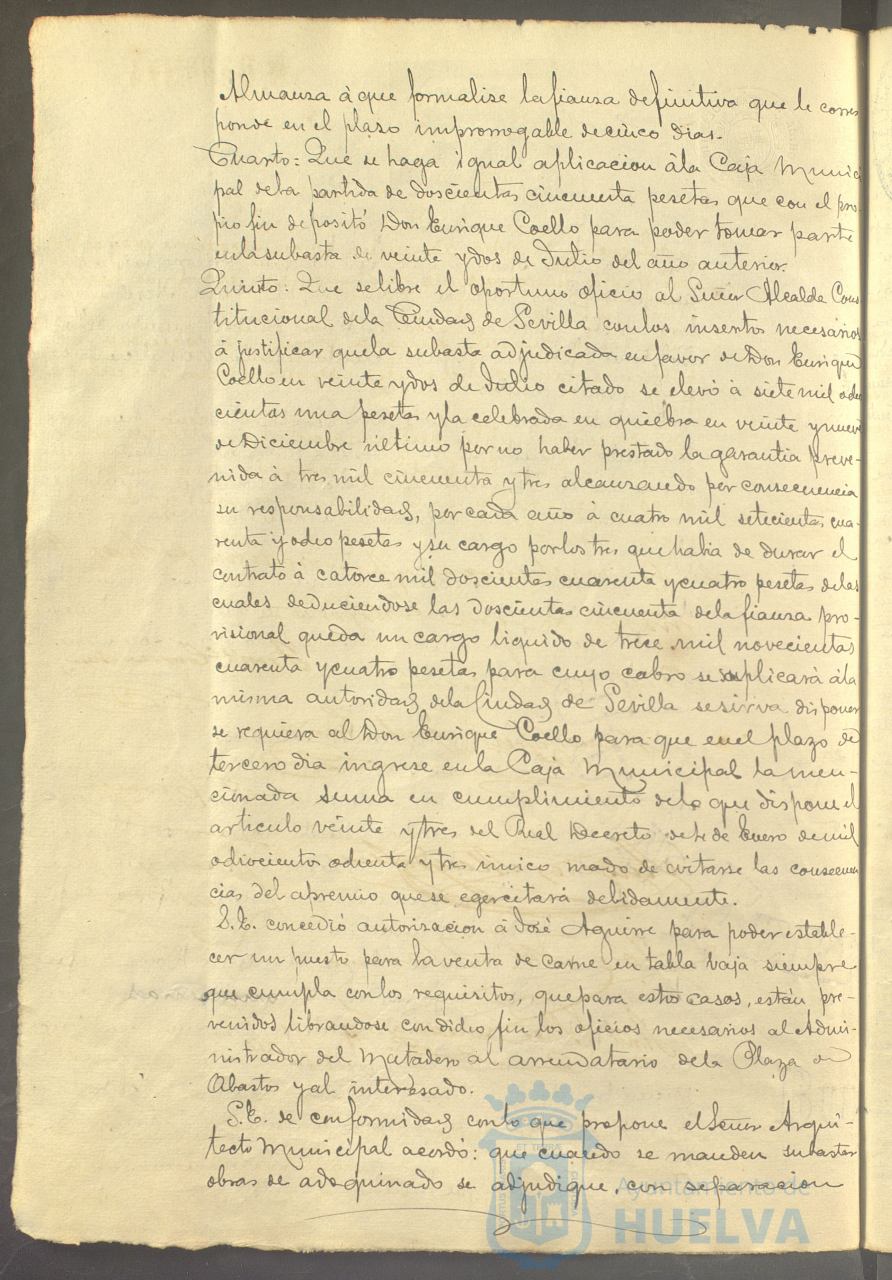 Almansa á que formalise la fianza definitiva que le corres
ponde en el plaso improrrogable de cinco dias.
Cuarto: Que se haga igual aplicacion á la Caja Munici
pal de la partida de doscientas cincuenta pesetas que con el pro-
pio fin depositó Don Enrique Coello para poder tomar parte
en la subasta de veinte y dos de Julio del año anterior.
Quinto: Que se libre el oportuno oficio al Señor Alcalde Cons
titucional de la Ciudad de Sevilla con los insertos necesarios
á justificar que la subasta adjudicada en favor de Don Enrique
Coello en veinte y dos de Julio citado se elevó á siete mil ocho
cientas una pesetas y la celebrada en quiebra en veinte y nueve
de Diciembre último por no haber prestado la garantia preve-
nida á tres mil cincuenta y tres alcanzando por consecuencia
su responsabilidad, por cada año á cuatro mil setecientas cua-
renta y ocho pesetas y su cargo por los tres que habia de durar el
contrato á catorce mil doscientas cuarenta y cuatro pesetas de las
cuales deduciendose las doscientas cincuenta de la fianza pro-
visional queda un cargo liquido de trece mil novecientas
cuarenta y cuatro pesetas para cuyo cobro se suplicará á la
misma autoridad de la Ciudad de Sevilla se sirva disponer
se requiera al Don Enrique Coello para que en el plazo de
tercero dia ingrese en la Caja Municipal la men-
cionada suma en cumplimiento de lo que dispone el
articulo veinte y tres del Real Decreto de 4 de Enero de mil
ochocientos ochenta y tres único modo de evitarse las consecuen
cias del apremio que se egercitará debidamente.
S.E. concedió autorizacion á José Aguirre para poder estable-
cer un puesto para la venta de carne en tabla baja siempre
que cumpla con los requisitos, que para estos casos, están pre-
venidos librandose con dicho fin los oficios necesarios al Admi-
nistrador del Matadero al arrendatario de la Plaza de
Abastos y al interesado.
S.E. de conformidad con lo que propone el Señor Arqui-
tecto Municipal acordó: que cuando se manden subastar
obras de adoquinado se adjudique, con separacion
Ayuntamiento de
HUELVA